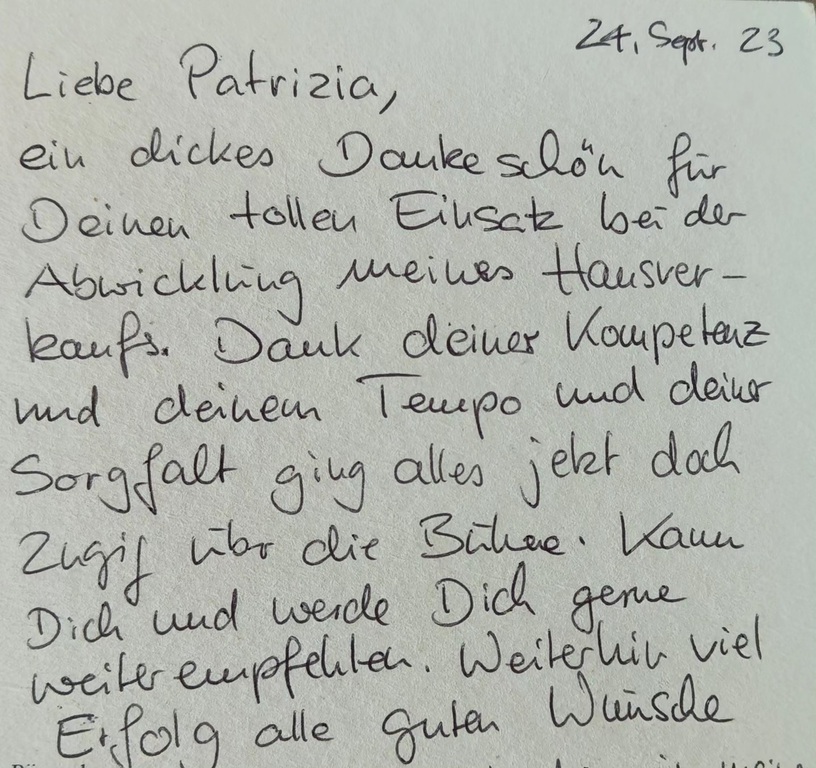 24. Sept. 23
Liebe Patrizia,
ein dickes Dankeschön für
Deinen tollen Einsatz bei der
Abwicklung meines Hausver-
kaufs. Dank deiner Kompetenz
und deinem Tempo und deiner
Sorgfalt ging alles jetzt doch
Zügig über die Bühne. Kann
Dich und werde Dich gerne
weiterempfehlen. Weiterhin viel
Erfolg alle guten Wünsche